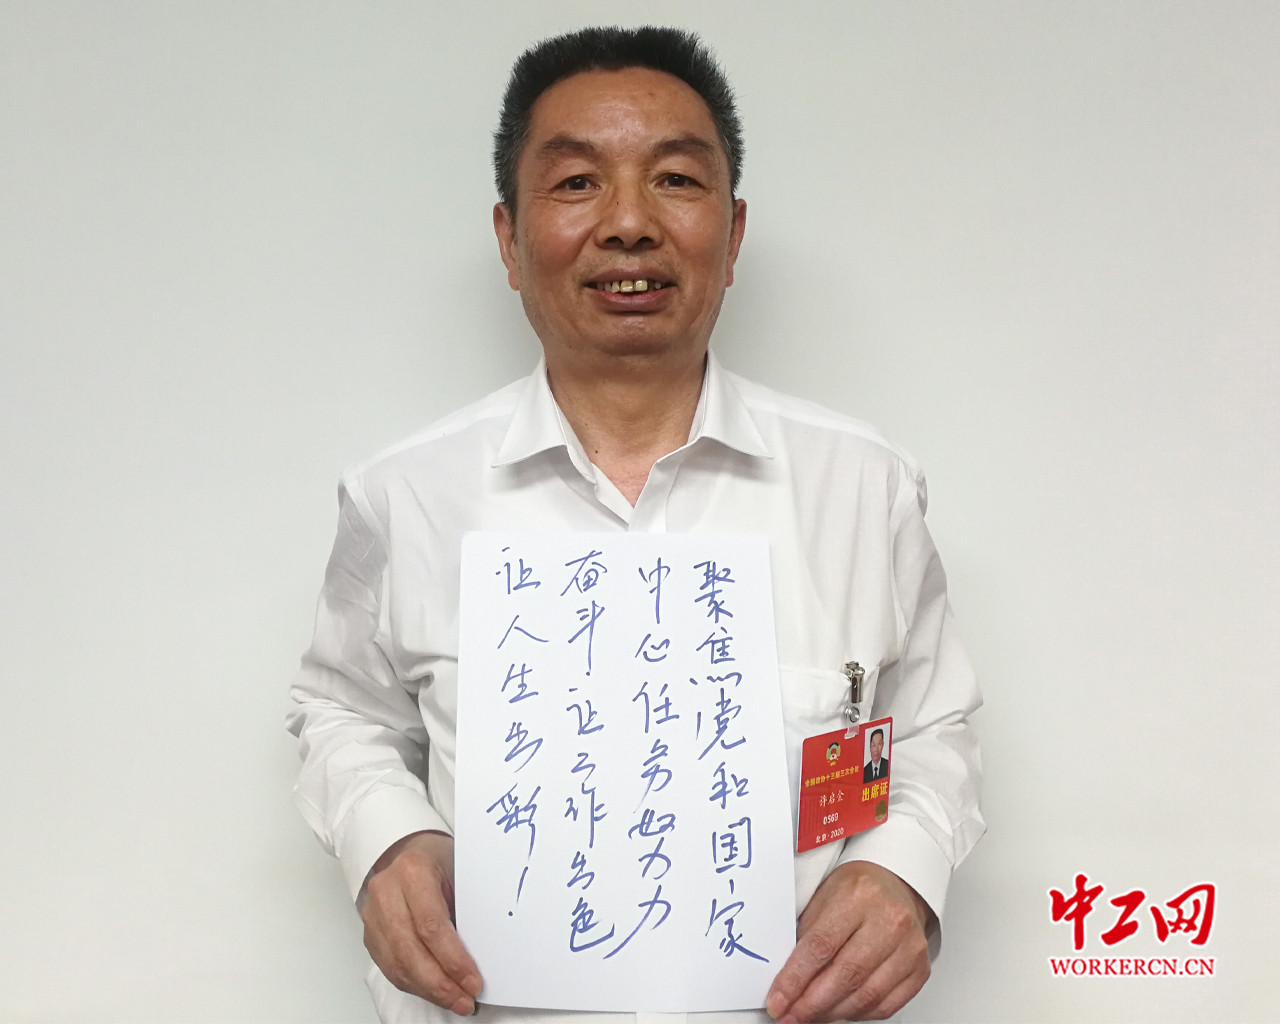 聚焦党和国家
中心任务努力
奋斗！让工作出色
让人生出彩！
全国政协十三届三次会议
许启金
出席证
0569
北京·2020
中工网
WORKERCN.CN